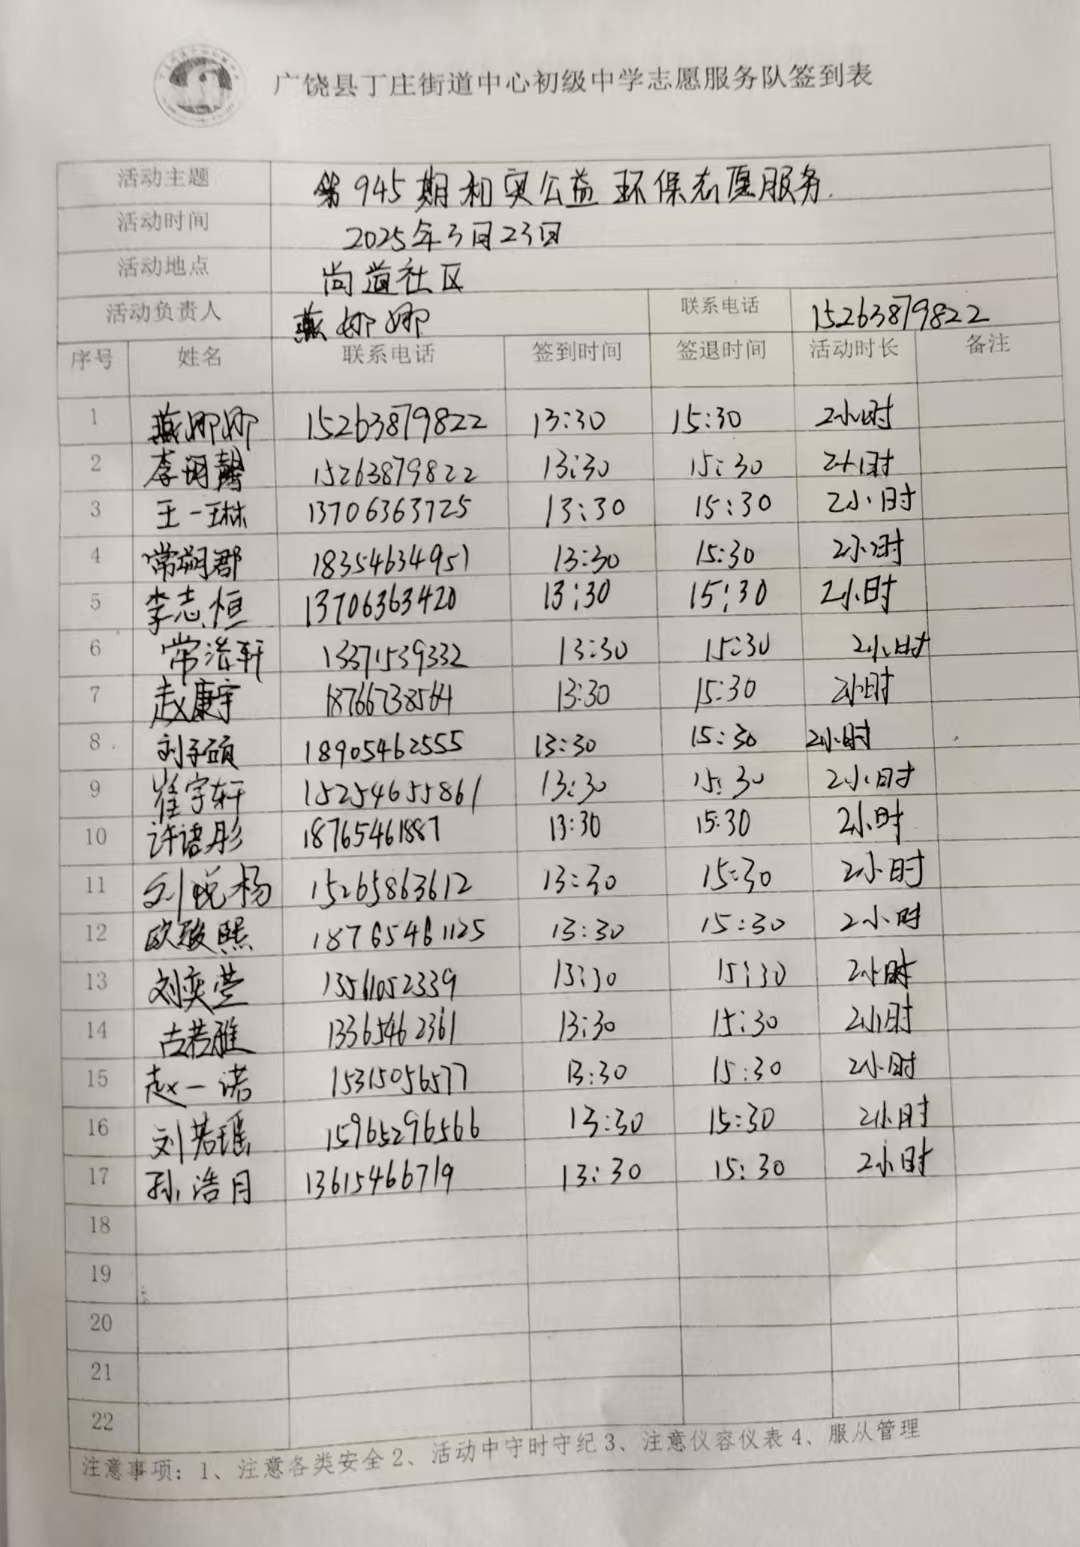 广饶县丁庄街道中心初级中学志愿服务队签到表
活动主题 第945期和实公益环保志愿服务.
活动时间 2025年3月23日
活动地点 尚道社区
活动负责人 燕娜娜 联系电话 15263879822
序号 姓名 联系电话 签到时间 签退时间 活动时长 备注
1 燕娜娜 15263879822 13:30 15:30 2小时
2 李明馨 15263879822 13:30 15:30 2小时
3 王一琳 13706363725 13:30 15:30 2小时
4 常朔郡 18354634951 13:30 15:30 2小时
5 李志恒 13706363420 13:30 15:30 2小时
6 常浩轩 13371539332 13:30 15:30 2小时
7 赵康宇 18766738564 13:30 15:30 2小时
8 刘子硕 18905462555 13:30 15:30 2小时
9 崔宇轩 15254655861 13:30 15:30 2小时
10 许语彤 18765461887 13:30 15:30 2小时
11 刘悦杨 15265863612 13:30 15:30 2小时
12 欧致熙 18765461125 13:30 15:30 2小时
13 刘奕萱 13561052339 13:30 15:30 2小时
14 古若雅 13365462361 13:30 15:30 2小时
15 赵一诺 15315056577 13:30 15:30 2小时
16 刘若瑶 15965296566 13:30 15:30 2小时
17 孙浩月 13615466719 13:30 15:30 2小时
18
19
20
21
22
注意事项：1、注意各类安全2、活动中守时守纪3、注意仪容仪表4、服从管理